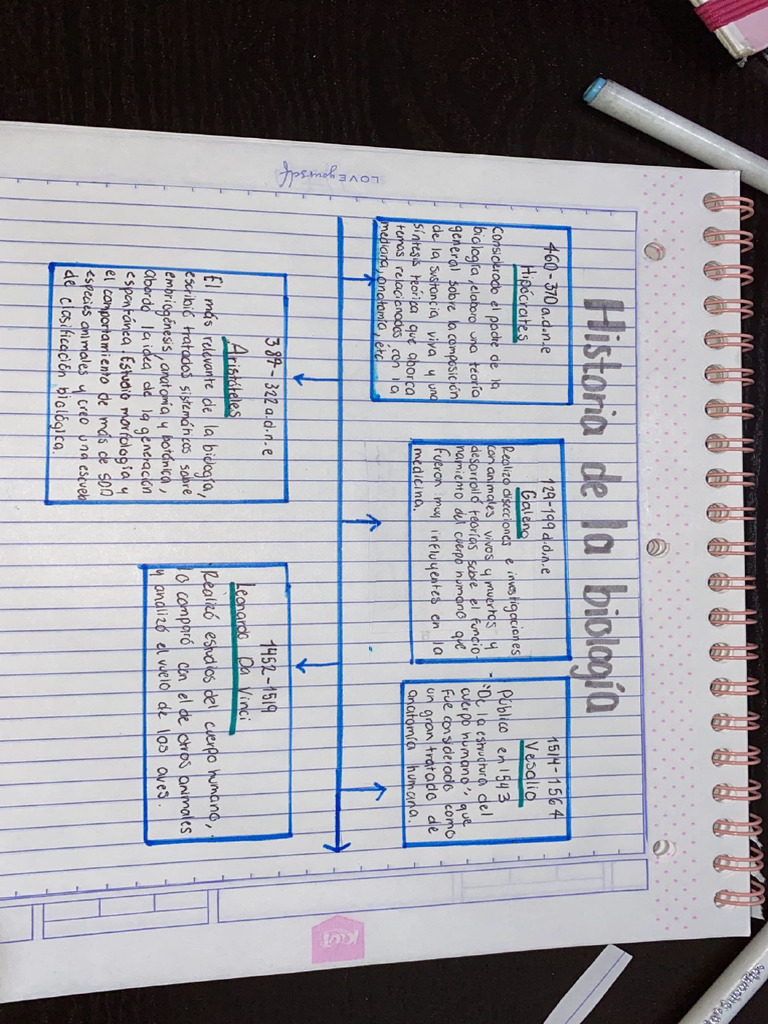 Historia de la biología
460-370 a.d.n.e
Hipócrates
Considerado el padre de la
biología, elabora una teoría
general sobre la composición
de la sustancia viva y una
síntesis teórica que abarca
temas relacionados con la
medicina, anatomía, etc
129-199 d.d.n.e
Galeno
Realizo disecciones e investigaciones
con animales vivos y muertos y
desarrolló teorías sobre el funcio-
namiento del cuerpo humano que
fueron muy influyentes en la
medicina.
1514-1564
Vesalio
Público en 1543
"De la estructura del
cuerpo humano", que
fue considerado como
un gran tratado de
anatomía humana.
387-322 a.d.n.e
Aristóteles
El más relevante de la biología,
escribió tratados sistemáticos sobre
embriogénesis, anatomía y botánica,
abordó la idea de la generación
espontánea. Estudio morfología y
el comportamiento de más de 500
especies animales y creó una escuela
de clasificación biológica.
1452-1519
Leonardo Da Vinci
Realizó estudios del cuerpo humano,
lo comparó con el de otros animales
y analizó el vuelo de las aves.
LOVE yourself